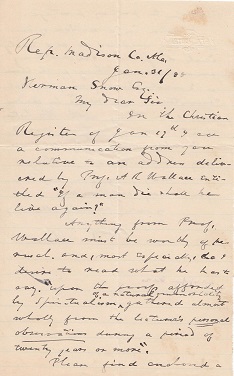 Rep. Madison Co. Ala.
Jan. 31/88
Herman Snow Esq.
My Dear Sir
In the Christian
Register of Jan 19th I see
a communication from you
relative to an address deliv-
ered by Prof. A R Wallace enti-
tled "If a man die shall he
live again?"
Anything from Prof.
Wallace must be worthy of pe-
rusal, and, most especially, do I
desire to read what he has to
say "upon the proofs afforded
of a natural immortality
by Spiritualism, gathered almost
wholly from the lecturer's personal
observations during a period of
twenty years or more".
Please find enclosed a